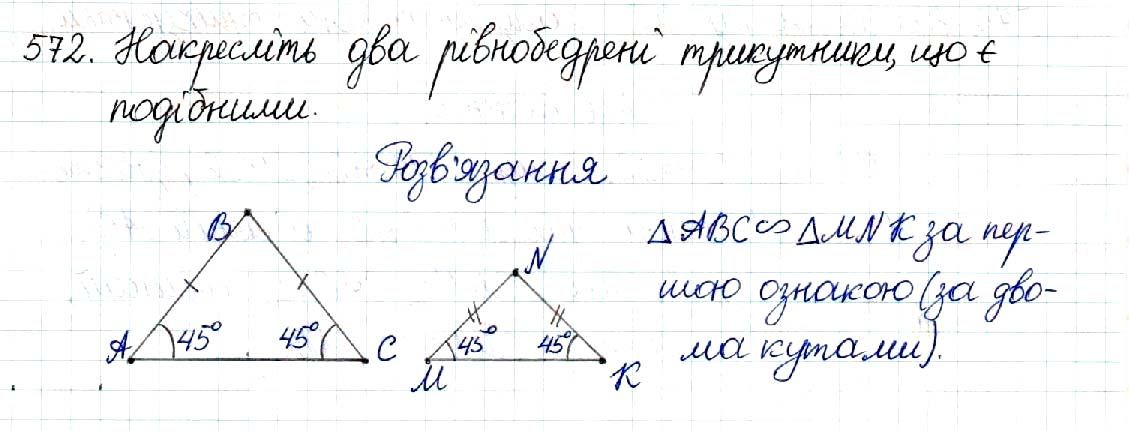 572. Накресліть два рівнобедрені трикутники, що є
подібними.
Розв'язання
B
N
A 45° 45° C
45° 45°
M K
△ABC∽△MNK за пер-
шою ознакою (за дво-
ма кутами).